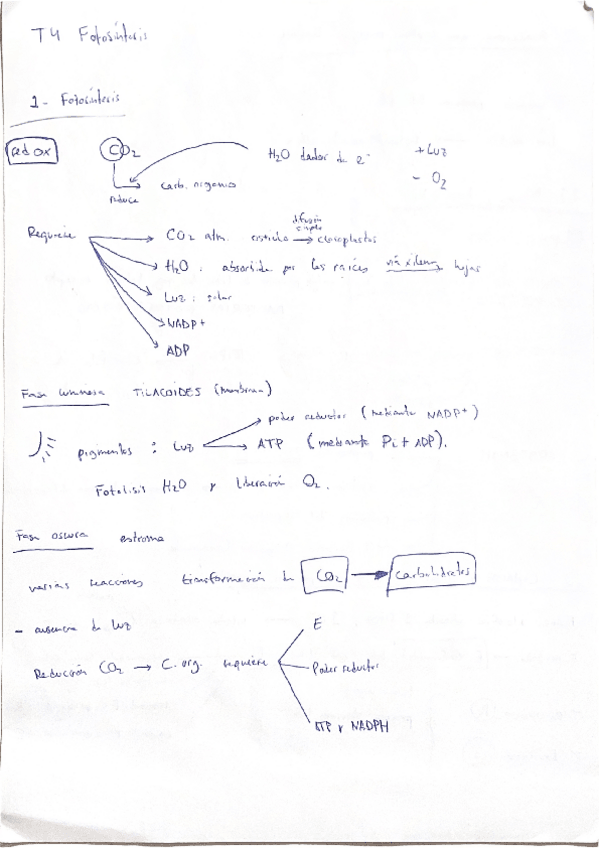 T4 Fotosíntesis
1- Fotosíntesis
redox CO2 H2O dador de e- + Luz
- O2
reduce carb. orgánico
Requiere CO2 atm. estroma difusión simple cloroplastos
H2O : absorbida por las raíces vía xilema hojas
Luz : solar
NADP+
ADP
Fase luminosa TILACOIDES (membrana)
pigmentos : Luz poder reductor (mediante NADP+)
ATP (mediante Pi + ADP).
Fotolisis H2O y liberación O2.
Fase oscura estroma
varias reacciones transformación de CO2 carbohidratos
- ausencia de luz
Reducción CO2 → C. org. requiere E
Poder reductor
ATP y NADPH